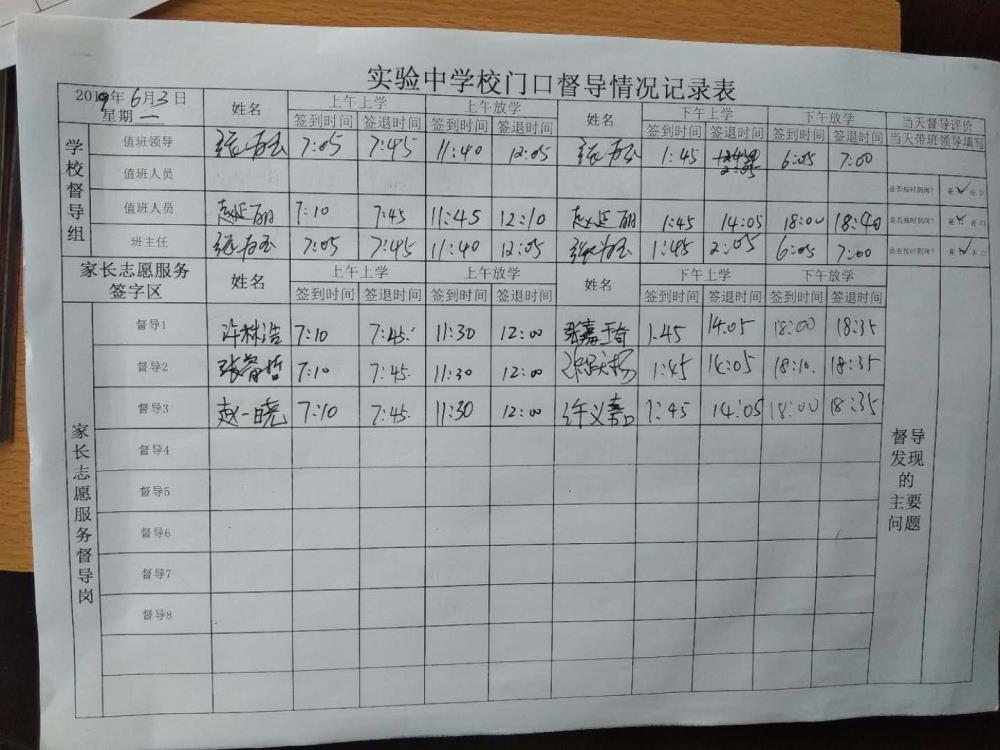 实验中学校门口督导情况记录表
2019年6月3日
星期一
姓名 上午上学 上午放学 姓名 下午上学 下午放学 当天督导评价
签到时间 签退时间 签到时间 签退时间 签到时间 签退时间 签到时间 签退时间 当天带班领导填写
学校督导组
值班领导 7:05 7:45 11:40 12:05 1:45 2:05 6:05 7:00
值班人员 是否按时到岗? 是 否口
值班人员 赵延丽 7:10 7:45 11:45 12:10 赵延丽 1:45 14:05 18:00 18:40 是否按时到岗? 是 否口
班主任 7:05 7:45 11:40 12:05 1:45 2:05 6:05 7:00 是否按时到岗? 是 否口
家长志愿服务 姓名 上午上学 上午放学 姓名 下午上学 下午放学
签字区 签到时间 签退时间 签到时间 签退时间 签到时间 签退时间 签到时间 签退时间
家长志愿服务督导岗
督导1 许林浩 7:10 7:45. 11:30 12:00 张嘉琦 1:45 14:05 18:00 18:35
督导2 张睿哲 7:10 7:45. 11:30 12:00 1:45 14:05 18:10. 18:35
督导3 赵一晓 7:10 7:45. 11:30 12:00 许义嘉 1:45 14:05 18:00 18:35
督导4
督导5
督导6
督导7
督导8
督导
发现
的
主要
问题